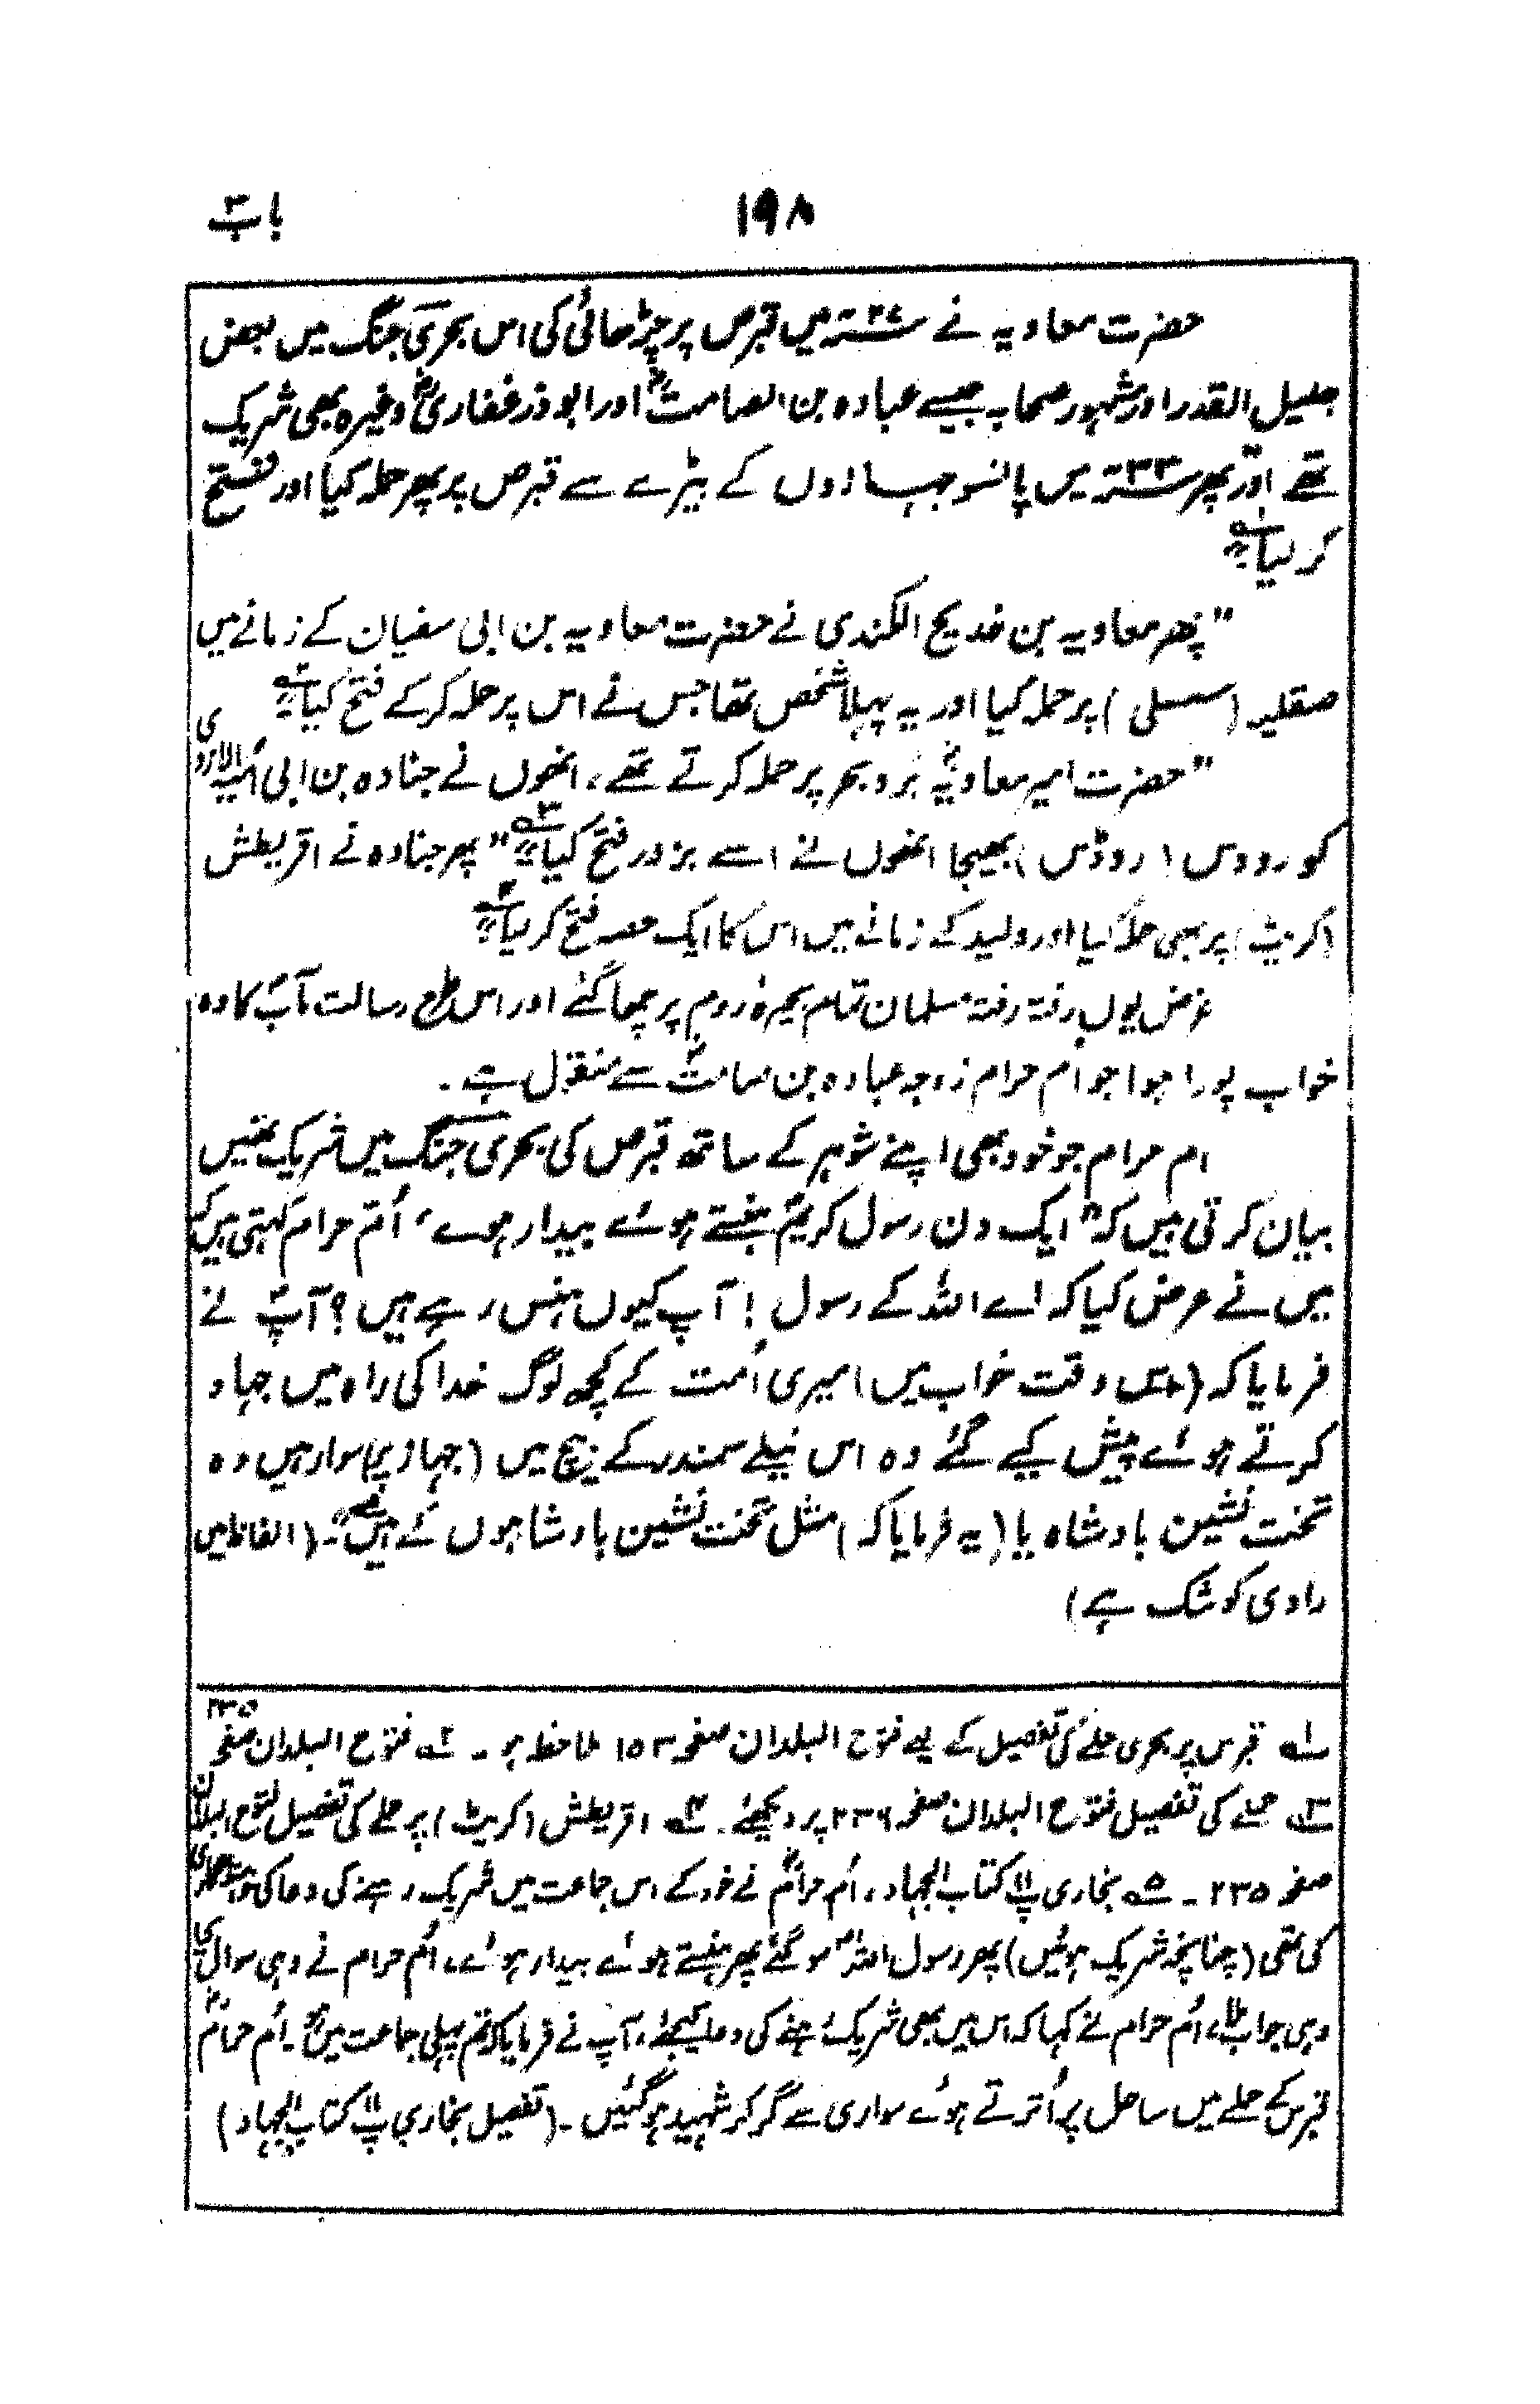 باب ۳
۱۹۸
حضرت معاویہ نے ۲۷ ؁ میں قبرص پر چڑھائی کی اس بحری جنگ میں بعض
جلیل القدر اور مشہور صحابہ جیسے عبادہ بن الصامتؓ اور ابوذر غفاریؓ وغیرہ بھی شریک
تھے اور پھر ۳۳ ؁ میں پانسو جہازوں کے بیڑے سے قبرص پر پھر حملہ کیا اور فتح
کر لیا ؁۱"
"پھر معاویہ بن خدیج الکندی نے حضرت معاویہ بن ابی سفیان کے زمانے میں
صقلیہ (سسلی) پر حملہ کیا اور یہ پہلا شخص تھا جس نے اس پر حملہ کرکے فتح کیا ؁۲"
"حضرت امیر معاویہؓ بر و بحر پر حملہ کرتے تھے، انھوں نے جنادہ بن ابی اُمیہ الازدی
کو رودس (روڈس) بھیجا انھوں نے اسے بزور فتح کیا ؁۳" "پھر جنادہ نے اقریطش
(کریٹ) پر بھی حملہ کیا اور ولید کے زمانے میں اس کا ایک حصہ فتح کر لیا ؁۴"
غرض یوں رفتہ رفتہ مسلمان تمام بحیرۂ روم پر چھا گئے اور اس طرح رسالت مآبؐ کا وہ
خواب پورا ہوا جو ام حرام زوجہ عبادہ بن صامتؓ سے منقول ہے۔
ام حرام جو خود بھی اپنے شوہر کے ساتھ قبرص کی بحری جنگ میں شریک تھیں
بیان کرتی ہیں کہ "ایک دن رسول کریمؐ ہنستے ہوئے بیدار ہوے، اُم حرام کہتی ہیں کہ
میں نے عرض کیا کہ اے اللہ کے رسول! آپ کیوں ہنس رہے ہیں؟ آپؐ نے
فرمایا کہ (اس وقت خواب میں) میری اُمت کے کچھ لوگ خدا کی راہ میں جہاد
کرتے ہوئے پیش کیے گئے وہ اس نیلے سمندر کے بیچ میں (جہاز پر) سوار ہیں وہ
تخت نشین بادشاہ یا (یہ فرمایا کہ) مثل تخت نشین بادشاہوں کے ہیں ؁۵"۔ (الفاظ میں
راوی کو شک ہے)
؁۱ قبرس پر بحری حملے کی تفصیل کے لیے فتوح البلدان صفحہ ۱۵۳ ملاحظہ ہو۔ ؁۲ فتوح البلدان صفحہ ۲۳۵
؁۳ حملے کی تفصیل فتوح البلدان صفحہ ۲۳۶ پر دیکھئے۔ ؁۴ اقریطش (کریٹ) پر حملے کی تفصیل فتوح البلدان
صفحہ ۲۳۵۔ ؁۵ بخاری پ۱۱ کتاب الجہاد، اُم حرامؓ نے خود کے اس جماعت میں شریک رہنے کی دعا کی
کی تھی (چنانچہ شریک ہوئیں) پھر رسول اللہؐ سو گئے پھر ہنستے ہوئے بیدار ہوئے، اُم حرام نے وہی سوال کیا
وہی جواب ملا، اُم حرام نے کہا کہ اس میں بھی شریک رہنے کی دعا کیجئے، آپ نے فرمایا کہ تم پہلی جماعت میں ہو۔ اُم حرامؓ
قبرس کے حملے میں ساحل پر اُترتے ہوئے سواری سے گر کر شہید ہوگئیں۔ (تفصیل بخاری پ۱۱ کتاب الجہاد)